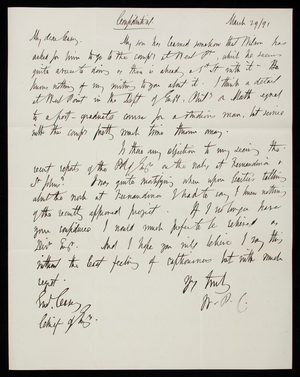 Confidential
March 29/91
My dear Casey,
My son has learned somehow that Wilson has
asked for him to go to the comp'y at West Pt, which he seems
quite averse to now, as there is already a 1st Lt with it - He
knows nothing of my writing to you about it. I think a detail
at West Point in the Dept of Eng, Phil. or Math equal
to a post-graduate course for a studious man, but service
with the comp'y pretty much time thrown away.
Is there any objection to my seeing the
recent reports of the Bd of Eng on the wks, at Fernandina &
St Johns? I was quite mortified when upon Carter's talking
about the work at Fernandina I had to say I knew nothing
of the recently approved project. If I no longer have
your confidence I would much prefer to be relieved as
Div. Eng. And I hope you will believe I say this
without the least feeling of captiousness but with much
regret.
Yrs truly
W. P. C.
Genl Casey
Chief of Eng.